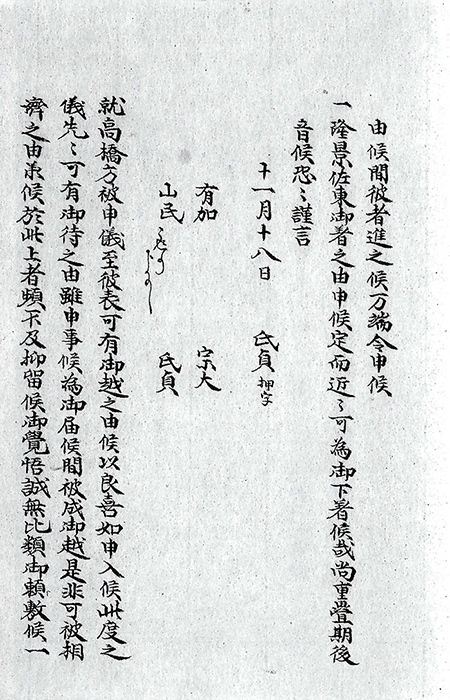 由候間彼者進之候万端令申候
一隆景佐東御着之由申候定而近々可為御下着候哉尚重畳期後
音候恐々謹言
十一月十八日　氏貞押字
有加　宗大
山民　氏貞
就高橋方被申儀至彼表可有御越之由候以良喜如申入候此度之
儀先々可有御待之由雖申事候為御届候間被成御越是非可被相
済之由承候於此上者頓不及抑留候御覚悟誠無比類御頼敷候一